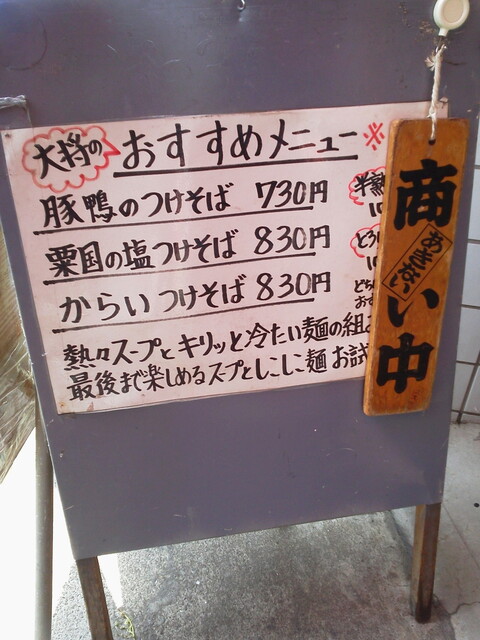 大将の おすすめメニュー ※
豚鴨のつけそば 730円
粟国の塩つけそば 830円
からいつけそば 830円
熱々スープとキリッと冷たい麺の組
最後まで楽しめるスープとしこしこ麺 お試
半熟
とろ
どち
おす
商い中
あきない